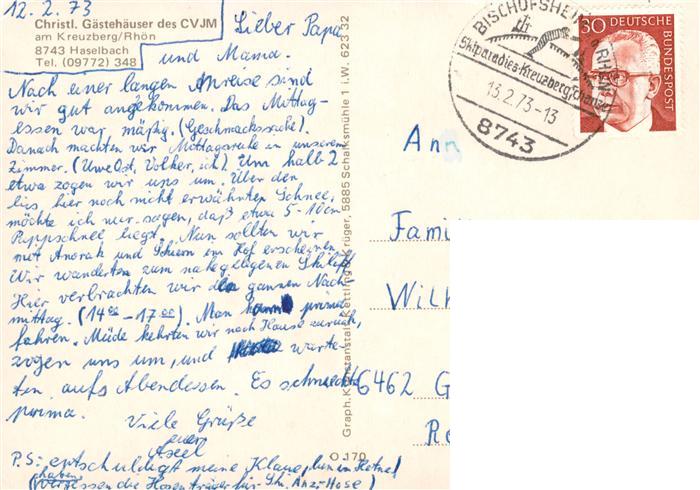 12.2.73
Christl. Gästehäuser des CVJM
am Kreuzberg/Rhön
8743 Haselbach
Tel. (09772) 348
Lieber Papa
und Mama.
Nach einer langen Anreise sind
wir gut angekommen. Das Mittag-
essen war mäßig. (Geschmackssache).
Danach machten wir Mittagsruhe in unserem
Zimmer. (Uwe Ost, Volker, ich). Um halb 2
etwa zogen wir uns um. Über den
bis, hier noch nicht erwähnten Schnee,
möchte ich nur sagen, daß etwa 5-10cm
Pappschnee liegt. Nun sollten wir
mit Anorak und Schiern im Hof erscheinen.
Wir wanderten zum nahegelegenen Skilift
Hier verbrachten wir den ganzen Nach-
mittag. (14⁰⁰ - 17⁰⁰). Man kann prima
fahren. Müde kehrten wir nach Hause zurück,
zogen uns um, und warte-
ten aufs Abendessen. Es schmeckte
prima.
Viele Grüße
euer
Axel
P.S: entschuldigt meine Klaue, bin in Hetze!
(haben
vergessen die Hosenträger für Ski. Anz.-Hose)
Graph. Kunstanstalt Kettling + Krüger, 5885 Schalksmühle 1 i. W. 623 32
O 170
BISCHOFSHEIM
a. RHÖN
Skiparadies-Kreuzbergschanze
13.2.73-13
8743
30
DEUTSCHE
BUNDESPOST
An
Fami
Wilh
6462 G